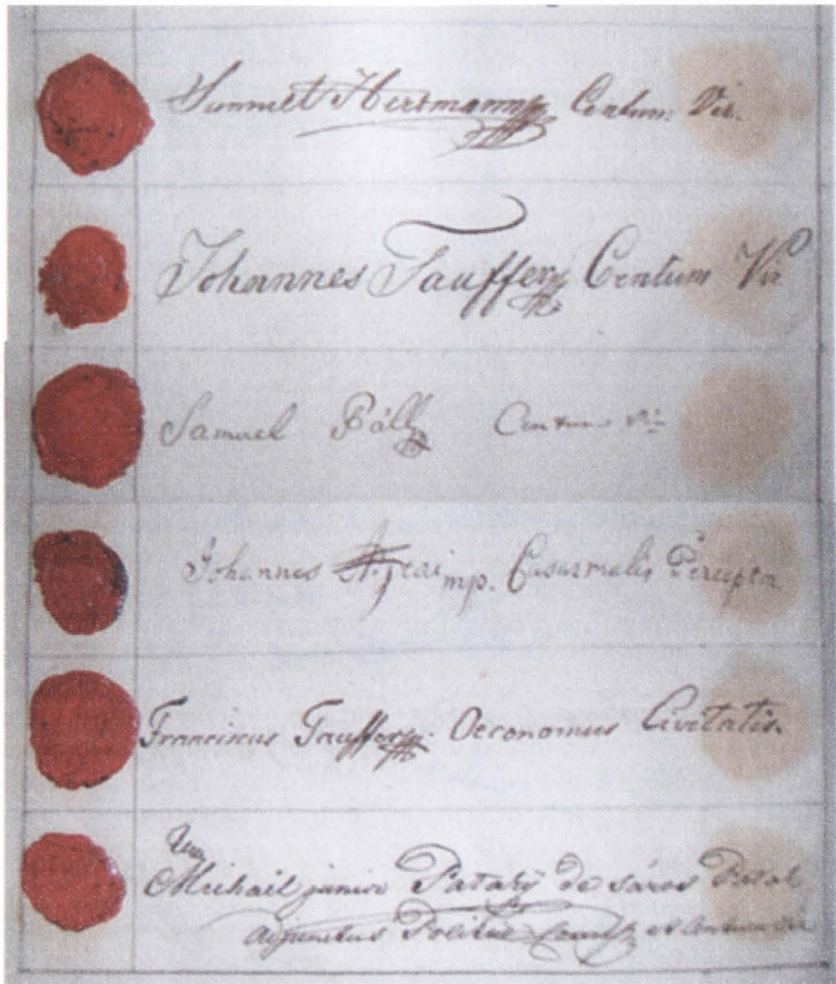 Samuel Hertmann Centum Vir.
Johannes Tauffer Centum Vir
Samuel Páll Centum Vir
Johannes mp. Casarmalis Perceptor
Franciscus Tauffer Oeconomus Civitatis.
Michaël junior Pataÿ de sáros Patak
adjunctus et Centum Vir